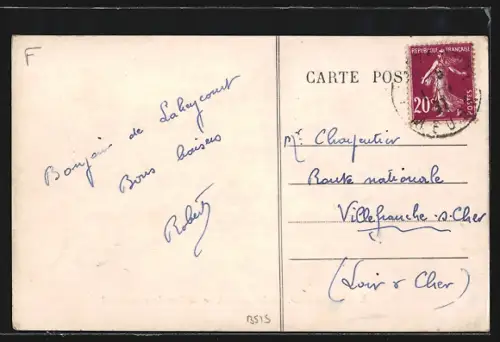 F
CARTE POST
REPUBLIQUE FRANÇAISE
20
POSTES
MEU
Bonjour de Laheycourt
Bons baisers
Robert
Mr Charpentier
Route nationale
Villefranche-s-Cher
(Loir & Cher)
B515